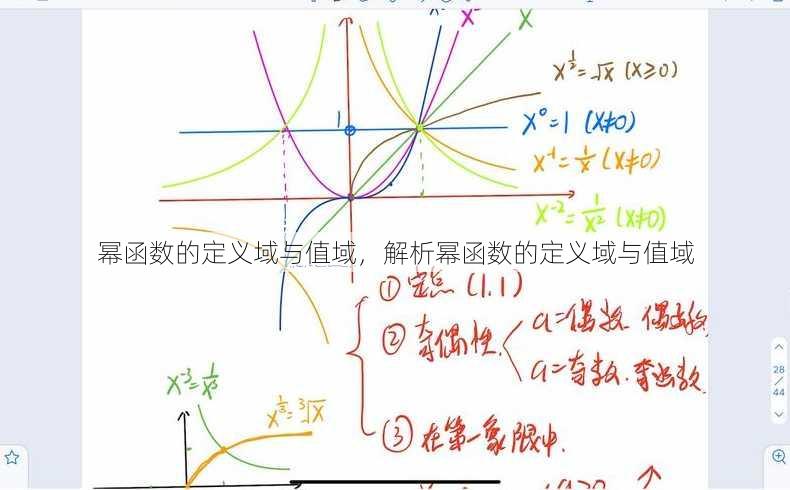 x² x
x^{1/2}=√x (x≥0)
1
x⁰=1 (x≠0)
x⁻¹=1/x (x≠0)
x⁻²=1/x² (x≠0)
幂函数的定义域与值域，解析幂函数的定义域与值域
①定点(1.1)
②奇偶性
a=偶数.偶函数
a=奇数.奇函数.
x⁻³=1/x³
x^{1/3}=³√x
③在第一象限中.
28
44